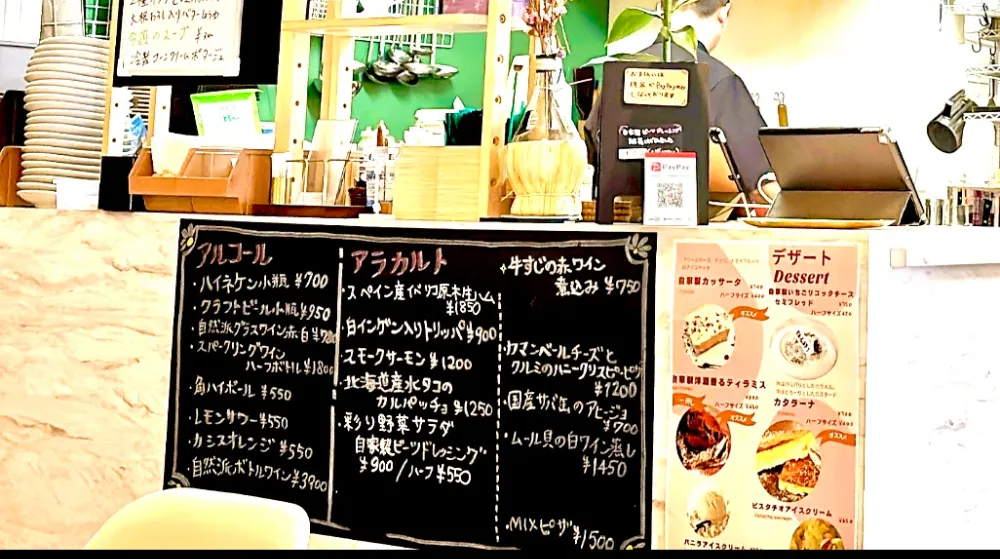 今週のスープ
冷製コーンクリームポタージュ
お支払いは
現金かPayPayのみ
となっております
PayPay
アルコール
・ハイネケン小瓶 ¥700
・クラフトビール小瓶 ¥950
・自然派グラスワイン赤白
・スパークリングワイン
ハーフボトル ¥1800
・角ハイボール ¥550
・レモンサワー ¥550
・カシスオレンジ ¥550
・自然派ボトルワイン ¥3900
アラカルト
・スペイン産イベリコ原木生ハム
¥1850
・白インゲン入りトリッパ ¥900
・スモークサーモン ¥1200
・北海道産水タコの
カルパッチョ ¥1250
・彩り野菜サラダ
自家製ビーツドレッシング
¥900/ハーフ¥550
牛すじの赤ワイン
煮込み ¥750
・カマンベールチーズと
クルミのハニークリスピーピザ
¥1200
・国産サバ缶のアヒージョ
¥700
・ムール貝の白ワイン蒸し
¥1450
・MIXピザ ¥1500
デザート
Dessert
自家製カッサータ
ハーフサイズ
オススメ
自家製いちごリコッタチーズ
セミフレッド
ハーフサイズ
自家製洋酒香るティラミス
ハーフサイズ
オススメ
カタラーナ
ハーフサイズ
オススメ
ピスタチオアイスクリーム
バニラアイスクリーム